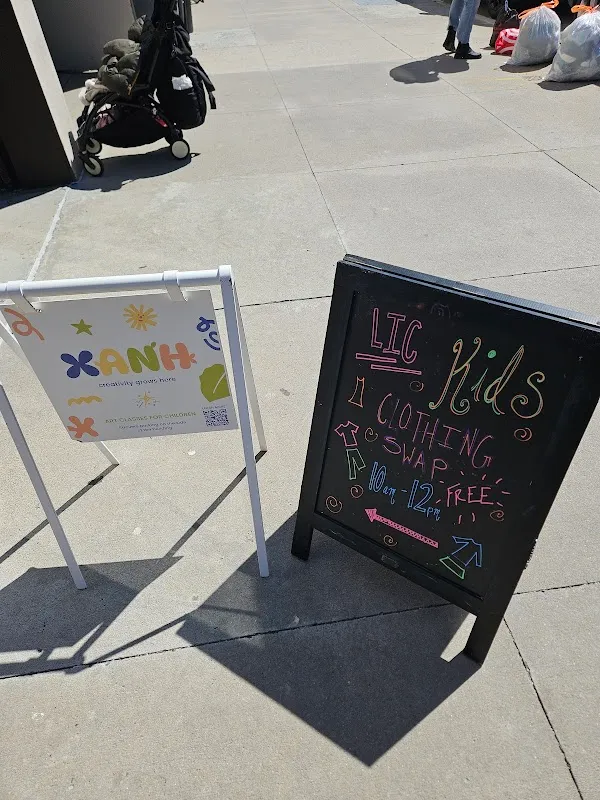 XANH
creativity grows here
ART CLASSES FOR CHILDREN
LIC
Kids
CLOTHING
SWAP
10am-12pm FREE